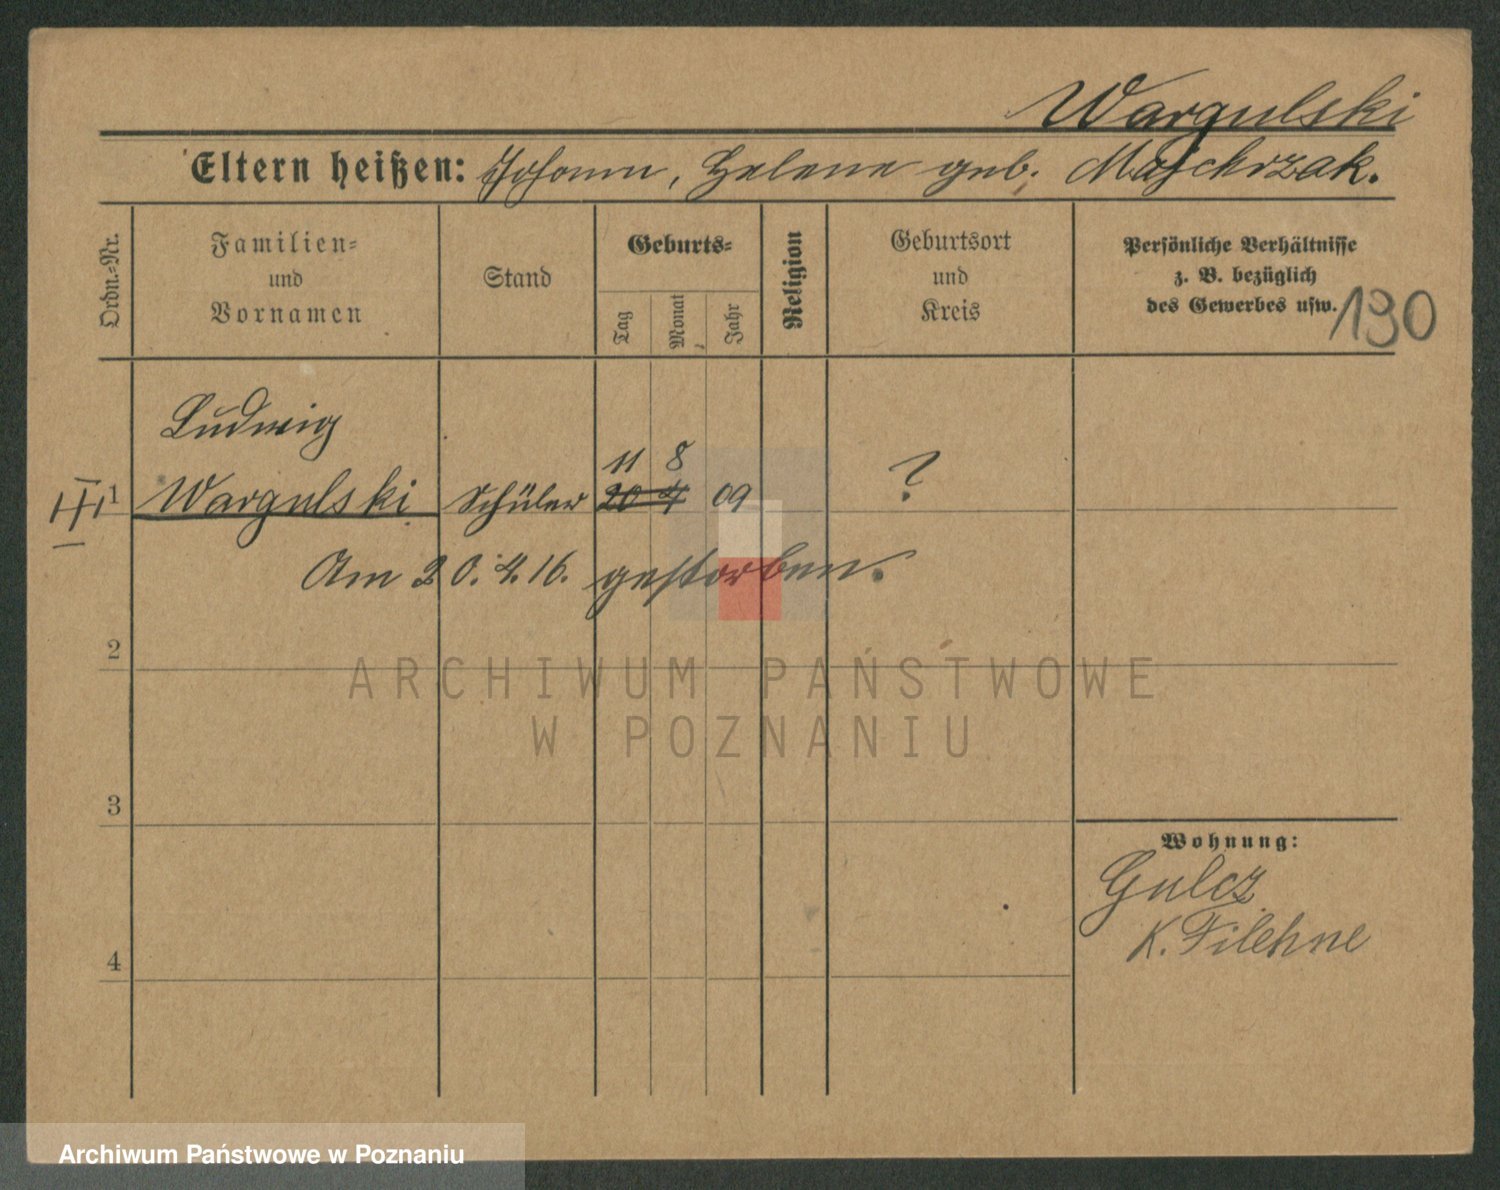 Wargulski
Eltern heißen: Johann, Helene geb. Majchrzak.
Ordn.-Nr.
Familien-
und
Vornamen
Stand
Geburts-
Tag
Monat
Jahr
Religion
Geburtsort
und
Kreis
Persönliche Verhältnisse
z. B. bezüglich
des Gewerbes usw.
190
Ludwig
11 8
III 1 Wargulski Schüler 20 4 09 ?
Am 20.4.16. gestorben.
2
ARCHIWUM PAŃSTWOWE
W POZNANIU
3
Wohnung:
Gulcz
K. Filehne
4
Archiwum Państwowe w Poznaniu